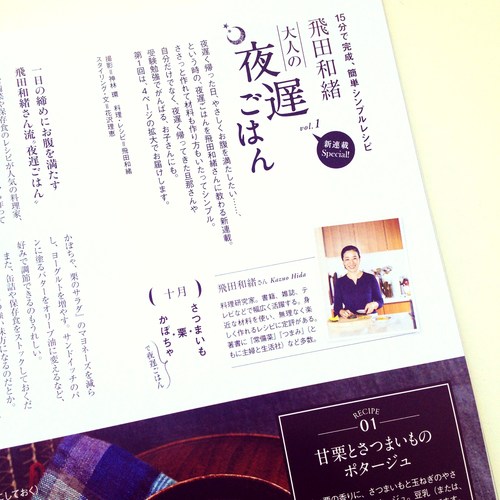 15分で完成、簡単シンプルレシピ
飛田和緒
大人の
夜遅ごはん
vol.1
新連載
Special!
夜遅く帰った日、やさしくお腹を満たしたい……、
という時の、夜遅ごはんを飛田和緒さんに教わる新連載。
ささっと作れて材料も作り方もいたってシンプル。
自分だけでなく、夜遅く帰ってきた旦那さんや
受験勉強でがんばる、お子さんにも。
第1回は、4ページの拡大でお届けします。
撮影=神林 環 料理・レシピ=飛田和緒
スタイリング・文=花沢理恵
一日の締めにお腹を満たす
飛田和緒さん流“夜遅ごはん”。
飛田和緒さん Kazuo Hida
料理研究家。書籍、雑誌、テ
レビなどで幅広く活躍する。身
近な材料を使い、無理なく楽
しく作れるレシピに定評がある。
著書に『常備菜』『つまみ』(と
もに主婦と生活社)など多数。
十月
さつまいも
栗
かぼちゃ
で夜遅ごはん
かぼちゃ、栗のサラダ”のマヨネーズを減ら
し、ヨーグルトを増やす。サンドイッチのパ
ンに塗るバターをオリーブ油に変えるなど、
好みで調節できるのもうれしい。
また、缶詰や保存食をストックしておくだ
RECIPE
01
甘栗とさつまいもの
ポタージュ
栗の香りに、さつまいもと玉ねぎのやさ